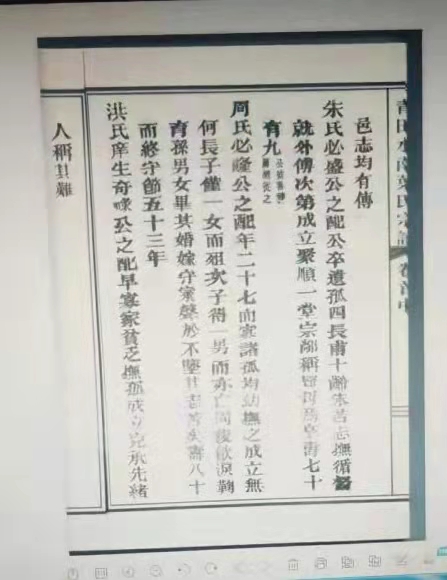 青田水南葉氏宗譜 卷首中
邑志均有傳
朱氏必盛公之配公卒遺孤四長甫十齡朱苦志撫循督
就外傅次第成立聚順一堂宗鄰稱賢母焉享壽七十
有九
周氏必隆公之配年二十七而寡諸孤均幼撫之成立無
何長子僅一女而殂次子得一男而亦亡周復飲淚鞠
育孫男女畢其婚嫁守家聲於不墜其志苦矣壽八十
而終守節五十三年
洪氏庠生奇 公之配早寡家貧乏撫孤成立克承先緒
人稱其難